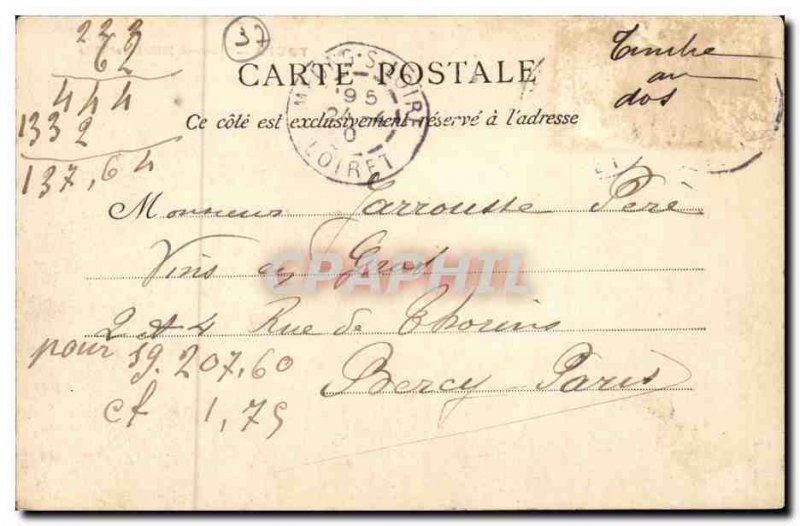 222
62
444
1332
137,64
37
Timbre
au
dos
CARTE POSTALE
Ce côté est exclusivement réservé à l'adresse
MEUNG-S-LOIRE
LOIRET
Monsieur Jarrousse Père
Vins en Gros
CPAPHIL
2 & 4 Rue de Thorins
Bercy-Paris
pour 19.207,60
cf 1,75